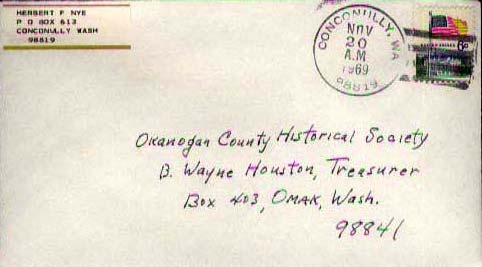 HERBERT F NYE
P O BOX 613
CONCONULLY WASH
98819
CONCONULLY, WA
NOV
20
A.M
1969
98819
6c
Okanogan County Historical Society
B. Wayne Houston, Treasurer
Box 403, OMAK, Wash.
98841